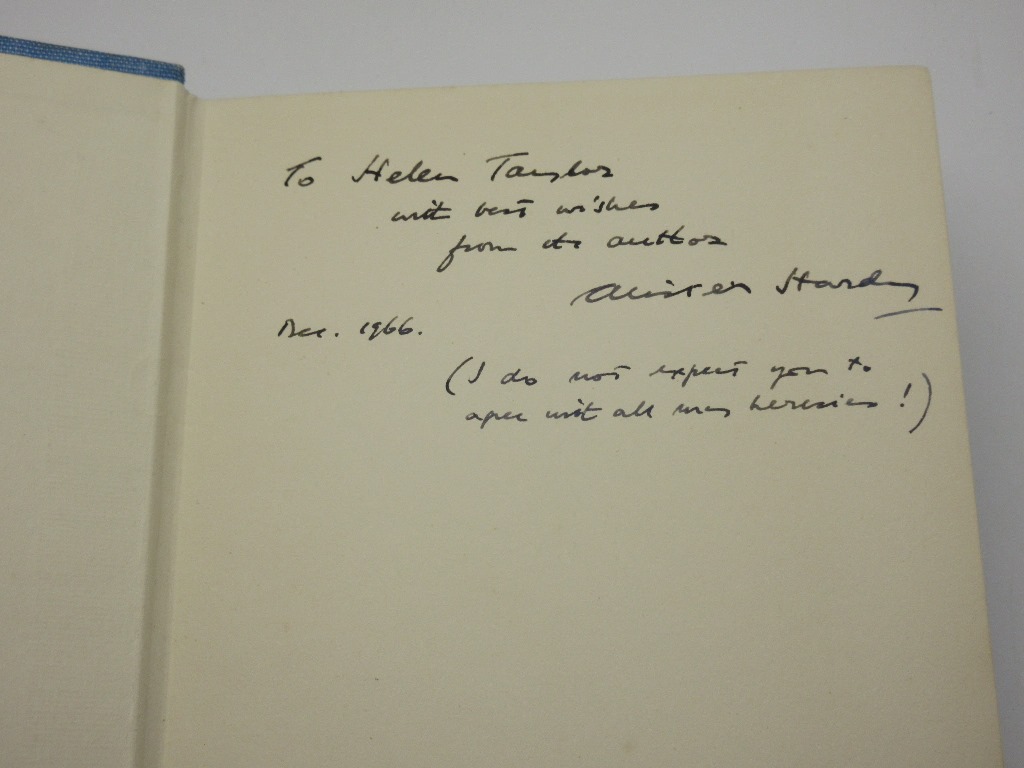 To Helen Taylor
with best wishes
from its author
Alister Hardy
Dec. 1966.
(I do not expect you to
agree with all my heresies!)